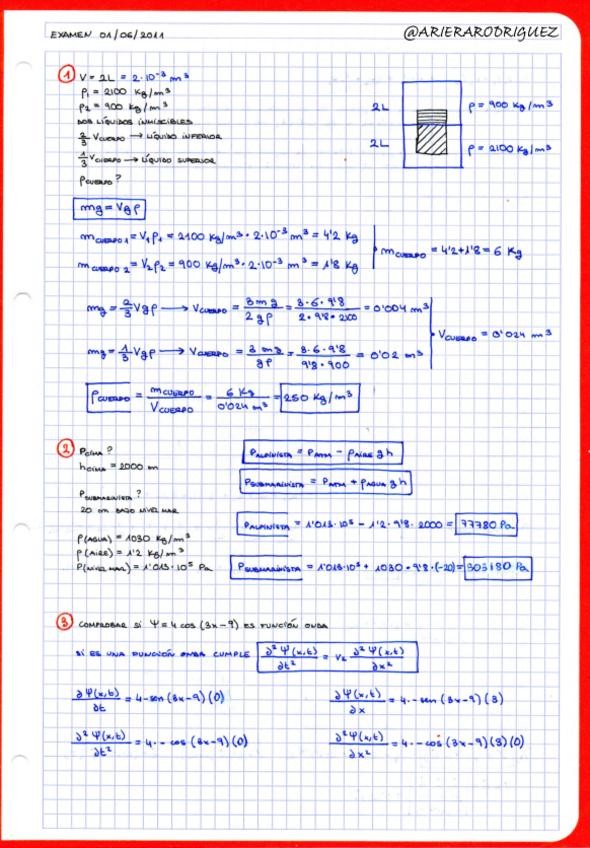 EXAMEN 01/06/2011
@ARIERARODRIGUEZ
1 V = 2L = 2·10⁻³ m³
ρ₁ = 2100 Kg/m³
ρ₂ = 900 Kg/m³
DOS LÍQUIDOS INMISCIBLES
2/3 VCUERPO → LÍQUIDO INFERIOR
1/3 VCUERPO → LÍQUIDO SUPERIOR
ρCUERPO?
2L ρ = 900 Kg/m³
2L ρ = 2100 Kg/m³
mg = Vgρ
mCUERPO 1 = V₁ρ₁ = 2100 Kg/m³ · 2·10⁻³ m³ = 4'2 Kg
mCUERPO 2 = V₂ρ₂ = 900 Kg/m³ · 2·10⁻³ m³ = 1'8 Kg
mCUERPO = 4'2+1'8 = 6 Kg
mg = 2/3 Vgρ → VCUERPO = 3mg/2gρ = 3·6·9'8/2·9'8·2100 = 0'004 m³
mg = 1/3 Vgρ → VCUERPO = 3mg/gρ = 3·6·9'8/9'8·900 = 0'02 m³
VCUERPO = 0'024 m³
ρCUERPO = mCUERPO/VCUERPO = 6 Kg/0'024 m³ = 250 Kg/m³
2 PCIMA?
hCIMA = 2000 m
PSUBMARINISTA?
20 m BAJO NIVEL MAR
ρ(AGUA) = 1030 Kg/m³
ρ(AIRE) = 1'2 Kg/m³
P(NIVEL MAR) = 1'013·10⁵ Pa
PALPINISTA = PATM − ρAIRE g h
PSUBMARINISTA = PATM + ρAGUA g h
PALPINISTA = 1'013·10⁵ − 1'2·9'8·2000 = 77780 Pa
PSUBMARINISTA = 1'013·10⁵ + 1030·9'8·(-20) = 303180 Pa
3 COMPROBAR SI Ψ = 4 cos (3x−9) ES FUNCIÓN ONDA
SI ES UNA FUNCIÓN ONDA CUMPLE ∂²Ψ(x,t)/∂t² = v² ∂²Ψ(x,t)/∂x²
∂Ψ(x,t)/∂t = 4·-sen(3x−9)(0)
∂Ψ(x,t)/∂x = 4·-sen(3x−9)(3)
∂²Ψ(x,t)/∂t² = 4·-cos(3x−9)(0)
∂²Ψ(x,t)/∂x² = 4·-cos(3x−9)(3)(0)